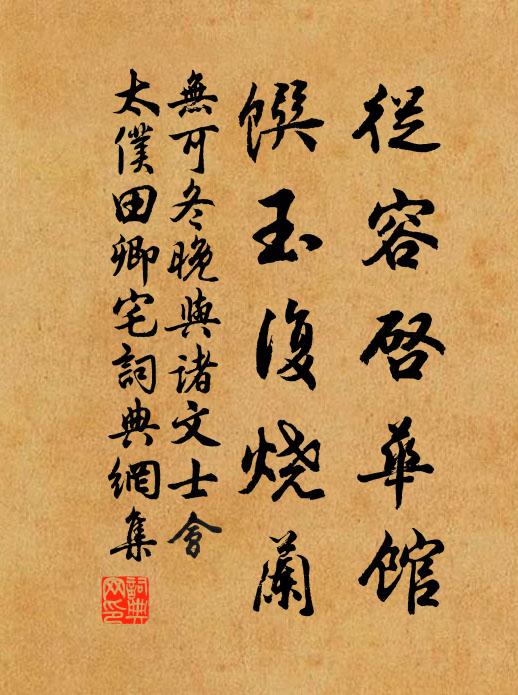 從容啓華館
饌玉復烧蘭
無可冬晚與諸文士會
太僕田卿宅詞典網集
詞典网印